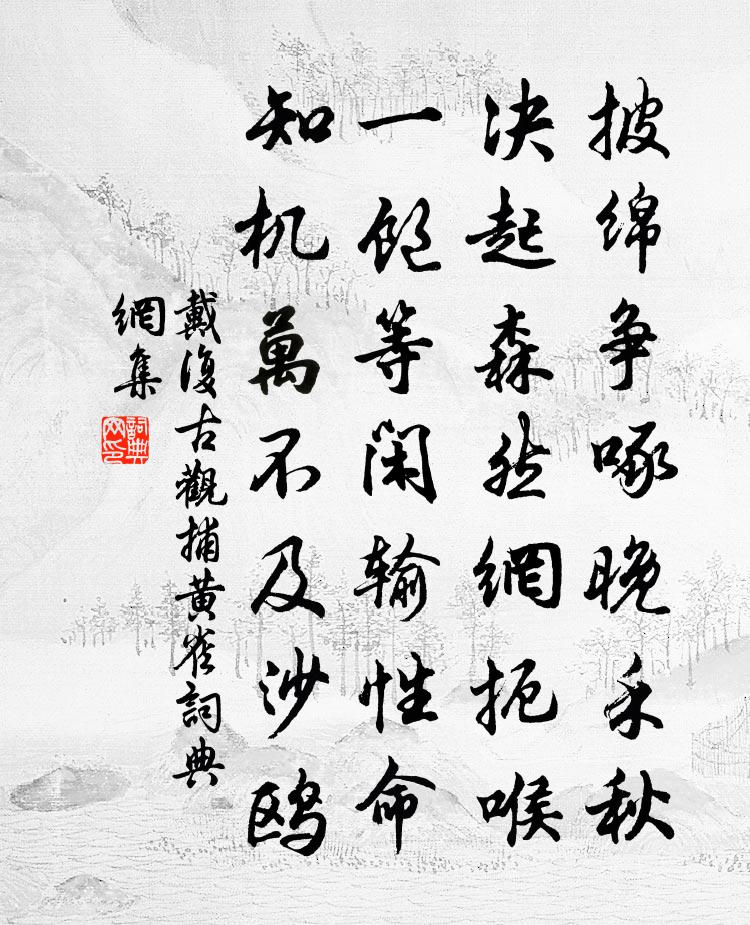 披绵争啄晚禾秋
决起森然網扼喉
一飽等闲输性命
知机萬不及沙鸥
戴復古觀捕黄雀詞典
網集
詞典
网印